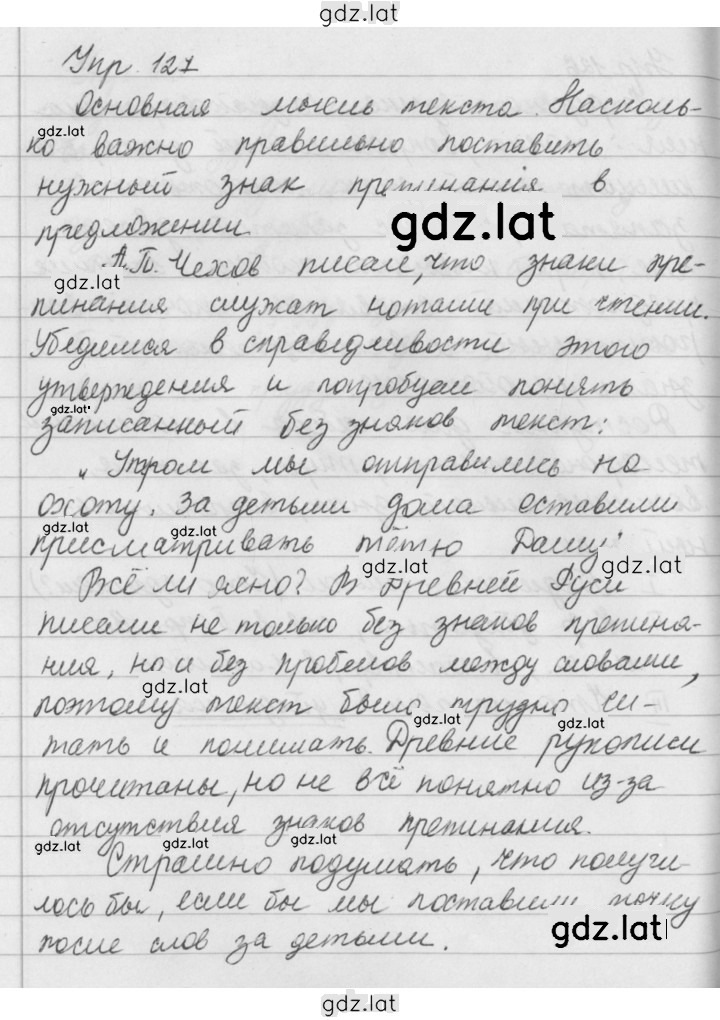 gdz.lat
Упр. 127
Основная мысль текста. Насколь-
gdz.lat
ко важно правильно поставить
нужный знак препинания в
gdz.lat
предложении.
А.П. Чехов писал, что знаки пре-
gdz.lat
пинания служат нотами при чтении.
Убедимся в справедливости этого
утверждения и попробуем понять
gdz.lat
записанный без знаков текст:
„Утром мы отправились на
охоту. За детьми дома оставили
gdz.lat gdz.lat
присматривать тётю Дашу."
gdz.lat gdz.lat
Всё ли ясно? В Древней Руси
писали не только без знаков препина-
ния, но и без пробелов между словами,
gdz.lat
поэтому текст было трудно чи-
gdz.lat gdz.lat
тать и понимать. Древние рукописи
прочитаны, но не всё понятно из-за
отсутствия знаков препинания.
gdz.lat gdz.lat
Страшно подумать, что получи-
лось бы, если бы мы поставили точку
gdz.lat gdz.lat
после слов за детьми.
gdz.lat